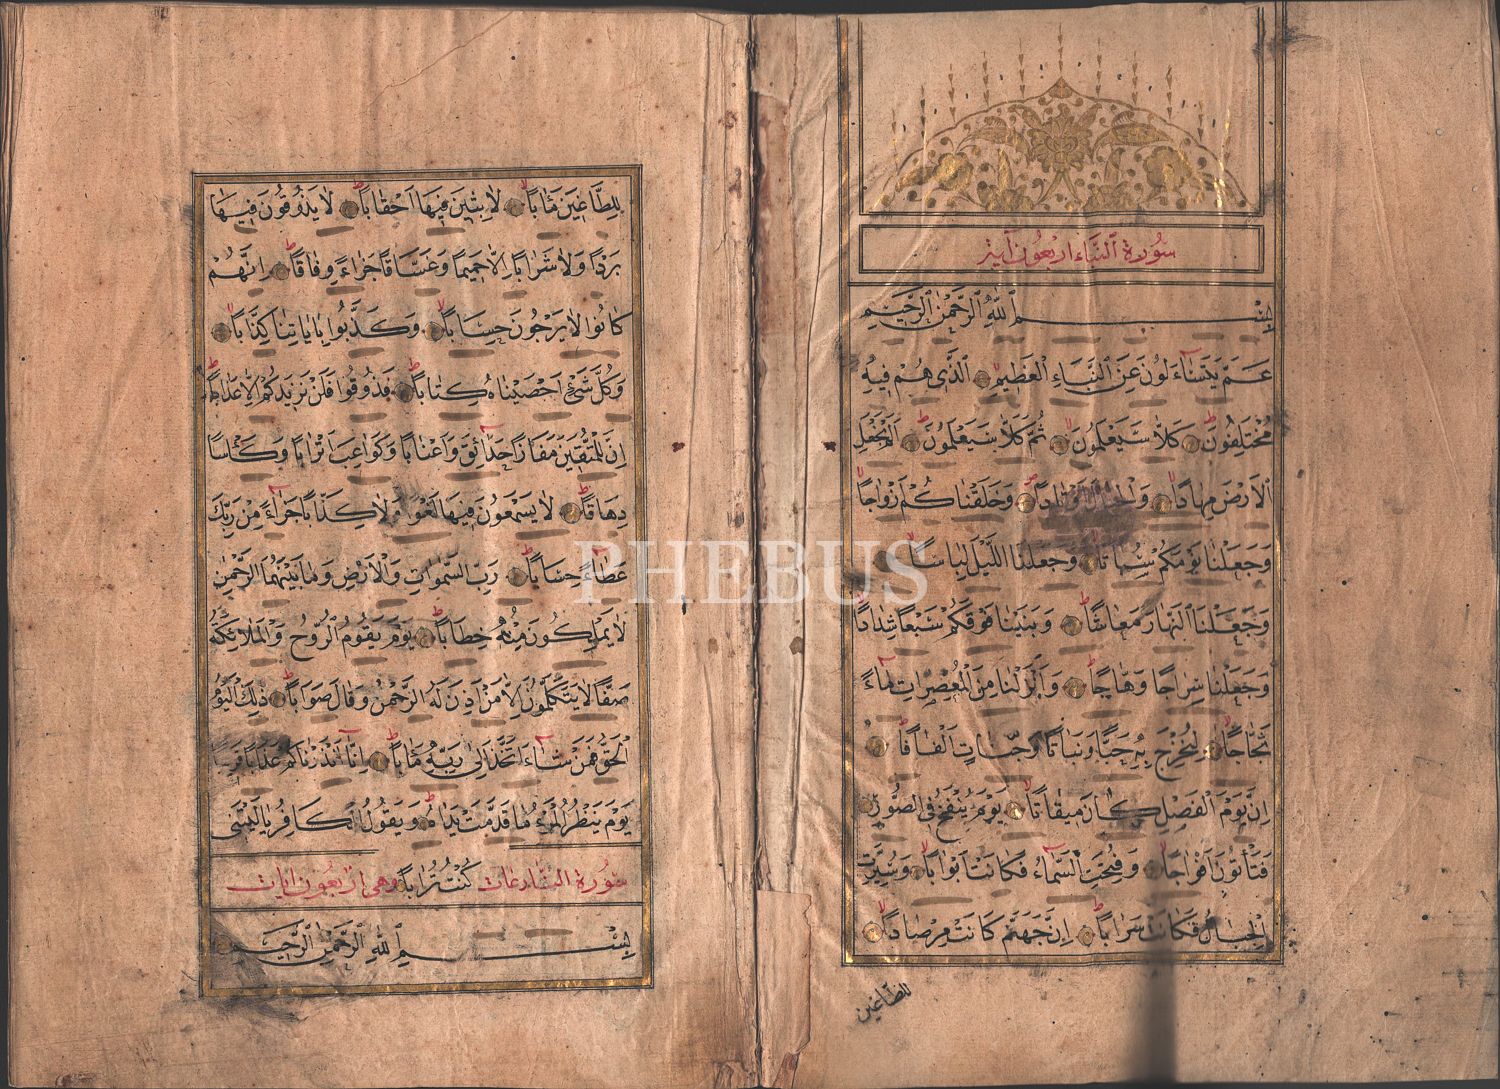 سورة النباء اربعون آية
بِسْمِ اللّٰهِ الرَّحْمٰنِ الرَّحِيمِ
عَمَّ يَتَسَاءَلُونَ عَنِ النَّبَاءِ الْعَظِيمِ الَّذِي هُمْ فِيهِ
مُخْتَلِفُونَ كَلَّا سَيَعْلَمُونَ ثُمَّ كَلَّا سَيَعْلَمُونَ اَلَمْ نَجْعَلِ
الْاَرْضَ مِهَادًا وَالْجِبَالَ اَوْتَادًا وَخَلَقْنَاكُمْ اَزْوَاجًا
وَجَعَلْنَا نَوْمَكُمْ سُبَاتًا وَجَعَلْنَا اللَّيْلَ لِبَاسًا
وَجَعَلْنَا النَّهَارَ مَعَاشًا وَبَنَيْنَا فَوْقَكُمْ سَبْعًا شِدَادًا
وَجَعَلْنَا سِرَاجًا وَهَّاجًا وَاَنْزَلْنَا مِنَ الْمُعْصِرَاتِ مَاءً
ثَجَّاجًا لِنُخْرِجَ بِهِ حَبًّا وَنَبَاتًا وَجَنَّاتٍ اَلْفَافًا
اِنَّ يَوْمَ الْفَصْلِ كَانَ مِيقَاتًا يَوْمَ يُنْفَخُ فِي الصُّورِ
فَتَأْتُونَ اَفْوَاجًا وَفُتِحَتِ السَّمَاءُ فَكَانَتْ اَبْوَابًا وَسُيِّرَتِ
الْجِبَالُ فَكَانَتْ سَرَابًا اِنَّ جَهَنَّمَ كَانَتْ مِرْصَادًا
للطاغين
لِلطَّاغِينَ مَاٰبًا لَابِثِينَ فِيهَا اَحْقَابًا لَا يَذُوقُونَ فِيهَا
بَرْدًا وَلَا شَرَابًا اِلَّا حَمِيمًا وَغَسَّاقًا جَزَاءً وِفَاقًا اِنَّهُمْ
كَانُوا لَا يَرْجُونَ حِسَابًا وَكَذَّبُوا بِاٰيَاتِنَا كِذَّابًا
وَكُلَّ شَيْءٍ اَحْصَيْنَاهُ كِتَابًا فَذُوقُوا فَلَنْ نَزِيدَكُمْ اِلَّا عَذَابًا
اِنَّ لِلْمُتَّقِينَ مَفَازًا حَدَائِقَ وَاَعْنَابًا وَكَوَاعِبَ اَتْرَابًا وَكَأْسًا
دِهَاقًا لَا يَسْمَعُونَ فِيهَا لَغْوًا وَلَا كِذَّابًا جَزَاءً مِنْ رَبِّكَ
عَطَاءً حِسَابًا رَبِّ السَّمٰوَاتِ وَالْاَرْضِ وَمَا بَيْنَهُمَا الرَّحْمٰنِ
لَا يَمْلِكُونَ مِنْهُ خِطَابًا يَوْمَ يَقُومُ الرُّوحُ وَالْمَلَائِكَةُ
صَفًّا لَا يَتَكَلَّمُونَ اِلَّا مَنْ اَذِنَ لَهُ الرَّحْمٰنُ وَقَالَ صَوَابًا ذٰلِكَ الْيَوْمُ
الْحَقُّ فَمَنْ شَاءَ اتَّخَذَ اِلٰى رَبِّهِ مَاٰبًا اِنَّا اَنْذَرْنَاكُمْ عَذَابًا قَرِيبًا
يَوْمَ يَنْظُرُ الْمَرْءُ مَا قَدَّمَتْ يَدَاهُ وَيَقُولُ الْكَافِرُ يَا لَيْتَنِي
سورة النازعات كُنْتُ تُرَابًا وهي اربعون ايات
بِسْمِ اللّٰهِ الرَّحْمٰنِ الرَّحِيمِ
PHEBUS